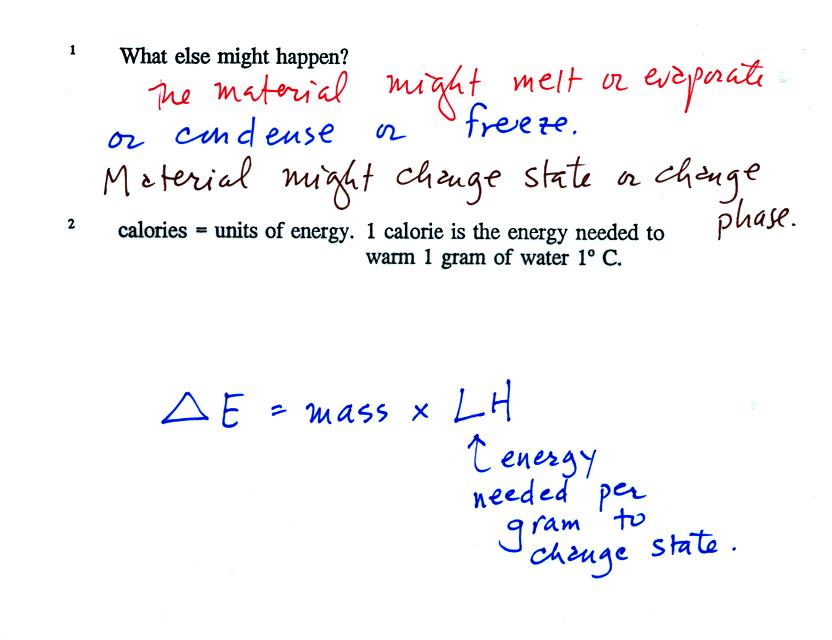 1 What else might happen?
The material might melt or evaporate
or condense or freeze.
Material might change state or change
phase.
2 calories = units of energy. 1 calorie is the energy needed to
warm 1 gram of water 1° C.
△E = mass × LH
↑ energy
needed per
gram to
change state.